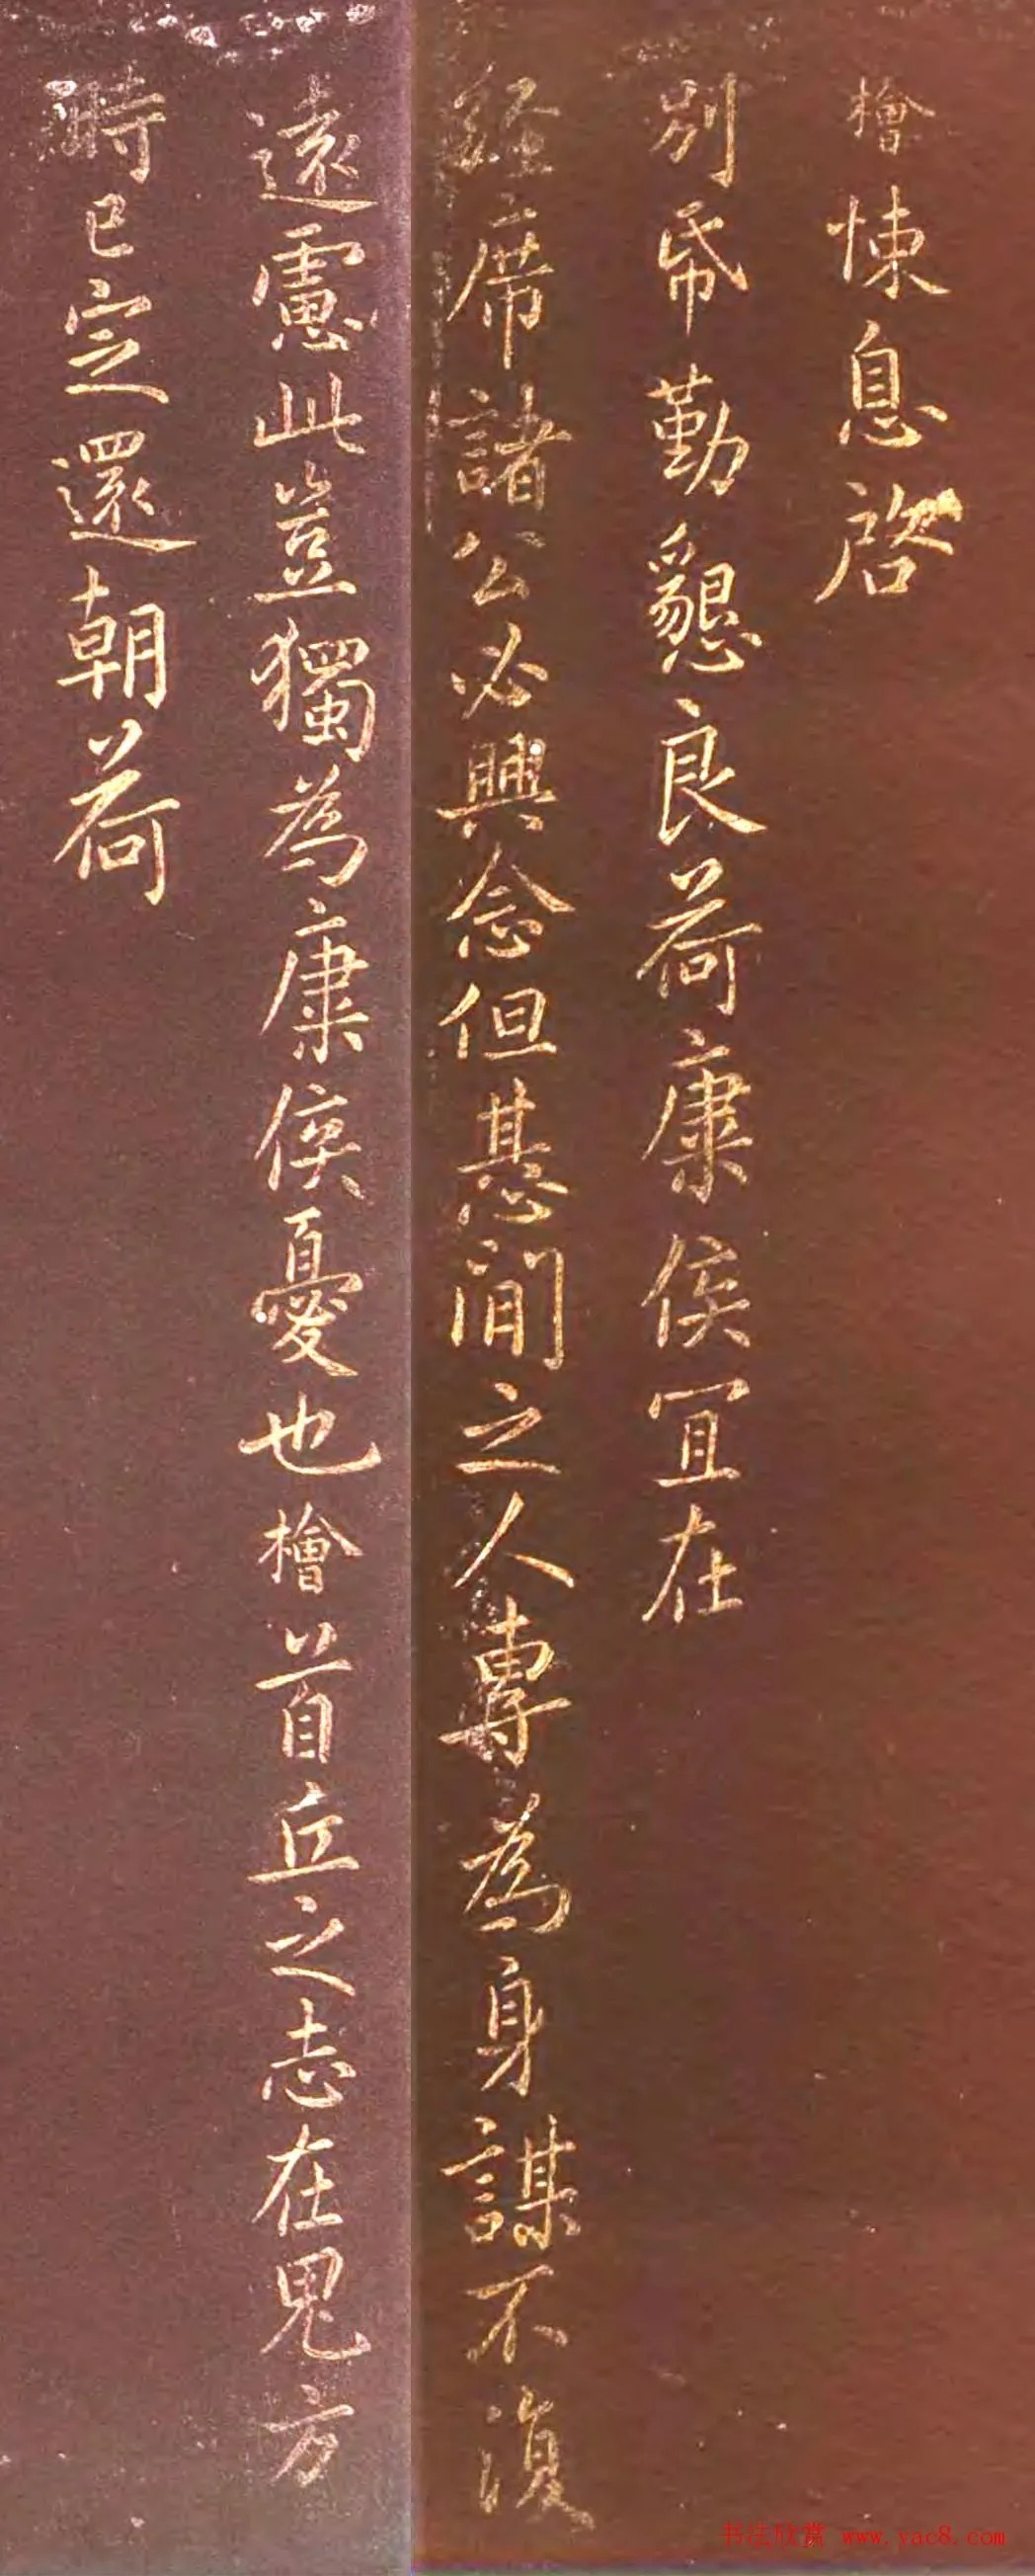 檜悚息啓
別帋勤懇良荷康侯宜在
經席諸公必興念但惎間之人專為身謀不復
遠慮此豈獨為康侯憂也檜首丘之志在鬼方
時已定還朝荷
书法欣赏 www.yac8.com